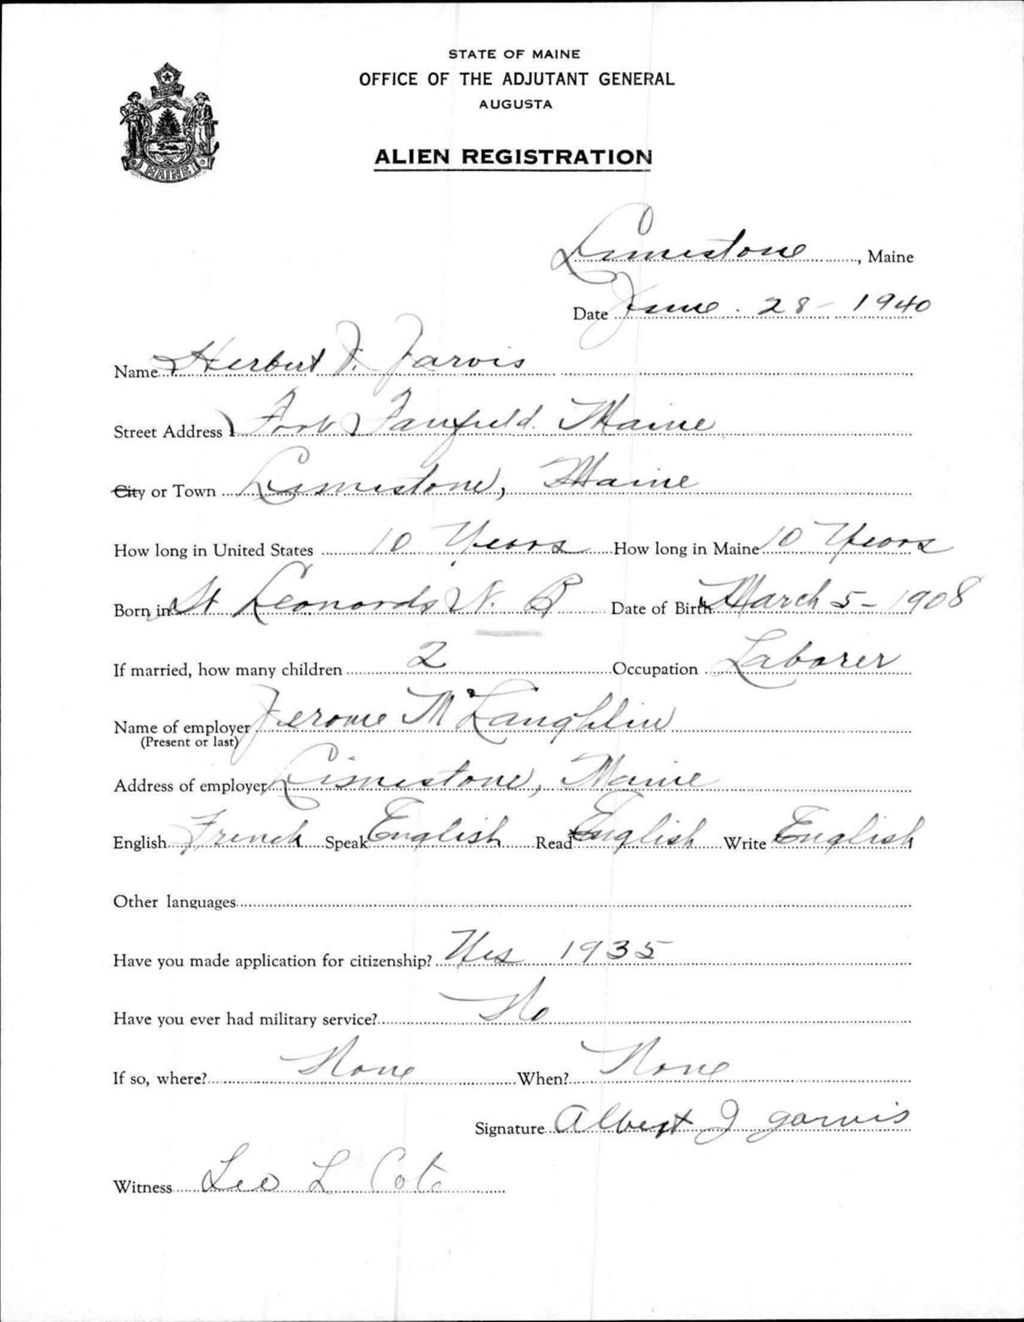 STATE OF MAINE
OFFICE OF THE ADJUTANT GENERAL
AUGUSTA
ALIEN REGISTRATION
MAINE
Limestone, Maine
Date June. 28 - 1940
Name Herbert J. Jarvis
Street Address Fort Fairfield. Maine
City or Town Limestone, Maine
How long in United States 10 Years How long in Maine 10 Years
Born in St Leonards N. B Date of Birth March 5 - 1908
If married, how many children 2 Occupation Laborer
Name of employer Jerome McLaughlin
(Present or last)
Address of employer Limestone, Maine
English French Speak English Read English Write English
Other languages
Have you made application for citizenship? Yes 1935
Have you ever had military service? No
If so, where? None When? None
Signature Albert J Jarvis
Witness Leo L Cote